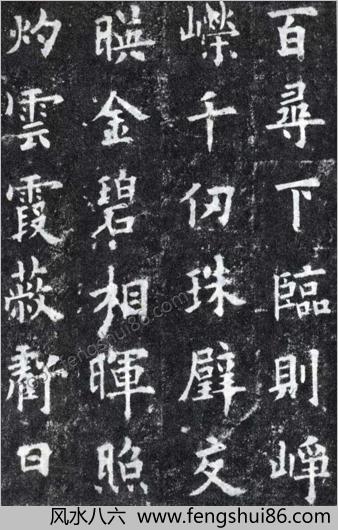 百尋下臨則崢
嶸千仞珠璧交
暎金碧相暉照
灼雲霞蔽虧日
风水八六 www.fengshui86.com